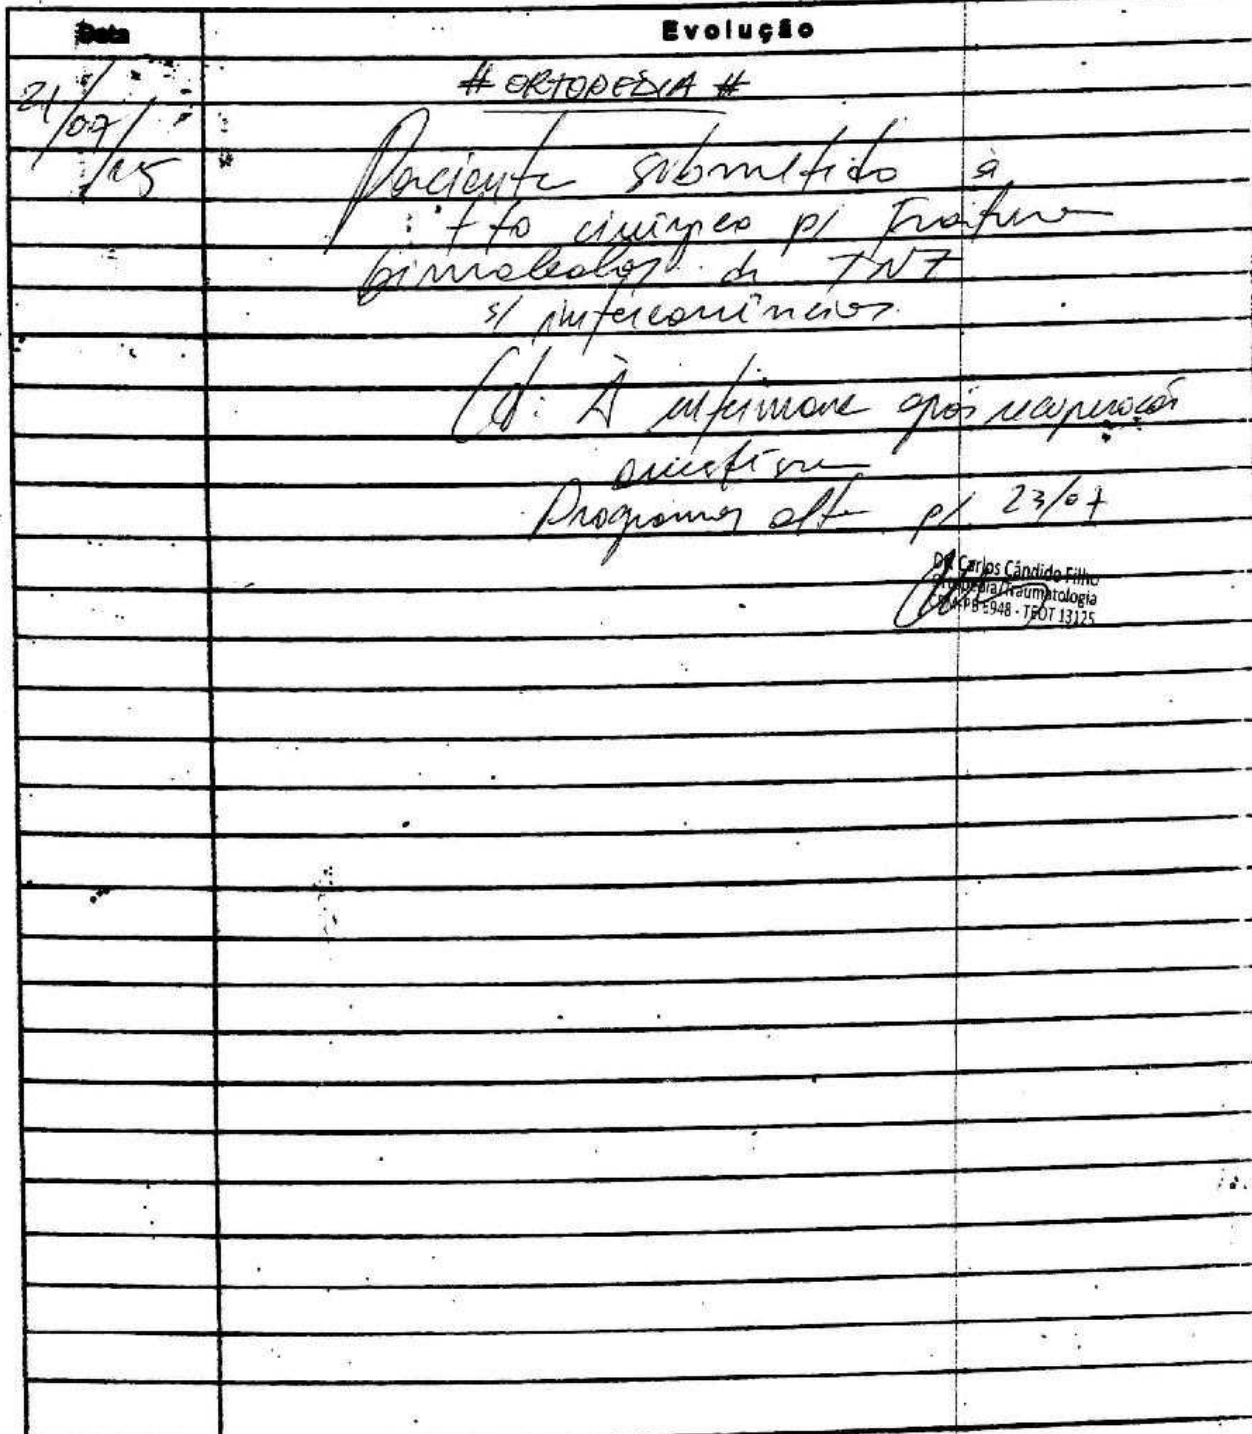 Data Evolução
21/07/15
# ORTOPEDIA #
Paciente submetido à
tto cirúrgico p/ Fratura
bimaleolar de TNZ
s/ intercorrências.
Cd: À enfermaria após recuperação
anestésica
Programar alta p/ 23/07
Dr Carlos Cândido Filho
Ortopedia/Traumatologia
CRM-PB 5948 - TEOT 13125